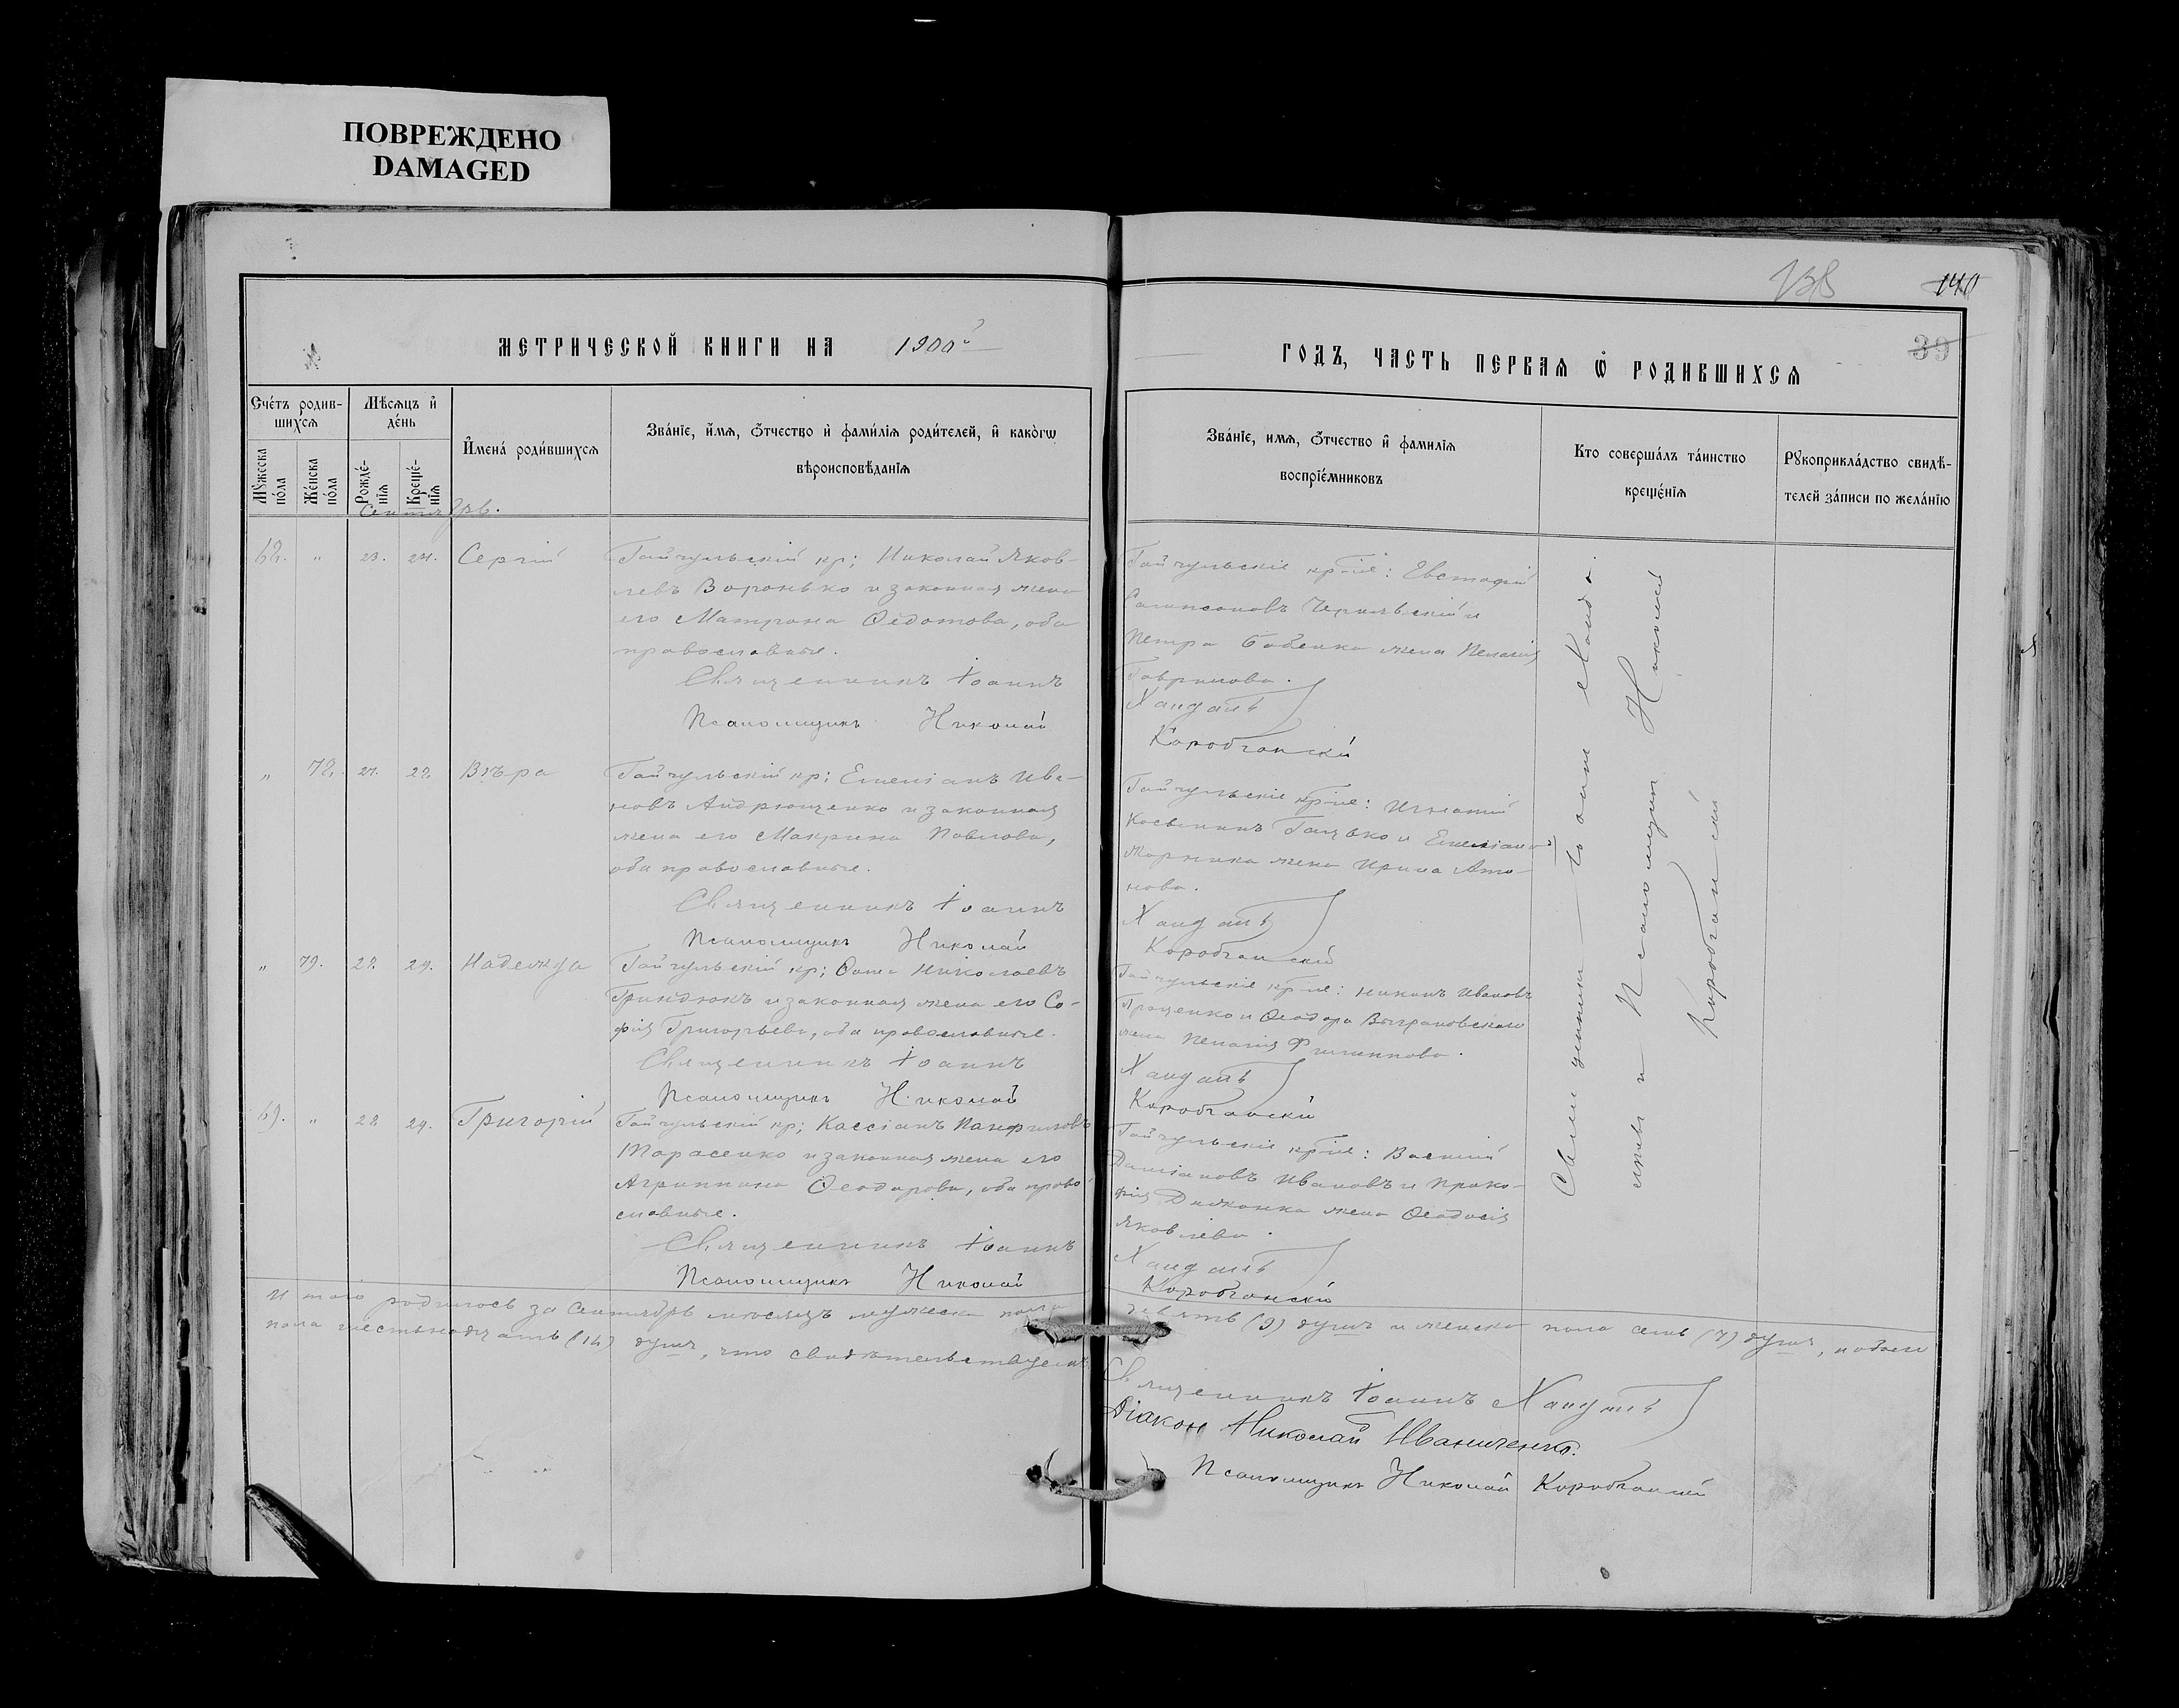 ПОВРЕЖДЕНО
DAMAGED
138
140
39
МЕТРИЧЕСКОЙ КНИГИ НА 1900й
ГОДЪ, ЧАСТЬ ПЕРВАЯ Ѽ РОДИВШИХСЯ
Счéтъ родив-
шихся
Мѣсяцъ и
дéнь
Мужеска
пóла
Жéнска
пóла
Рождé-
нія
Крещé-
нія
Именá родившихся
Звáніе, имя, ѻтчество и фамилія родителей, и какóгѡ
вѣроисповѣданія
Звáніе, имя, ѻтчество и фамилія
воспріéмниковъ
Кто совершáлъ тáинство
крещéнія
Рукоприклáдство свидѣ-
телей зáписи по желáнію
Сентябрь.
68. " 23. 24. Сергій
Гайчульскій кр; Николай Яков-
левъ Воронько и законная жена
его Матрона Ѳедотова, оба
православные.
Священникъ Іоаннъ
Псаломщикъ Николай
Гайчульскіе кр-не: Евстафій
Сампсоновъ Чернявскій и
Петра Бабенка жена Пелагія
Гаврилова.
Хандалѣ
Коробчанскій
" 78. 27. 28. Вѣра
Гайчульскій кр; Емеліанъ Ива-
новъ Андрющенко и законная
жена его Макрина Павлова,
оба православные.
Священникъ Іоаннъ
Псаломщикъ Николай
Гайчульскіе кр-не: Игнатій
Галько и Емеліана
жена Ирина Анто-
нова.
Коробчанскій
" 79. 28. 29. Надежда
Гайчульскій кр; Ѳома Николаевъ
Гриндюкъ и законная жена его Со-
фія Григорьева, оба православные.
Священникъ Іоаннъ
Псаломщикъ Николай
Гайчульскіе кр-не: Никонъ Ивановъ
Проценко и Ѳеодора Выграновскаго
жена Пелагія Филиппова.
Коробчанскій
69. " 28. 29. Григорій
Гайчульскій кр; Кассіанъ Панфиловъ
Тарасенко и законная жена его
Агриппина Ѳеодорова, оба право-
славные.
Священникъ Іоаннъ
Псаломщикъ Николай
Гайчульскіе кр-не: Василій
Даміановъ Ивановъ и Проко-
фія жена Ѳеодосія
Яковлева.
Коробчанскій
Священникъ Іоаннъ
и Псаломщикъ Николай
Коробчанскій
Итого родилось за Сентябрь мѣсяцъ мужеска пола девять (9) душъ и женска пола семь (7) душъ, и обоего
пола шестьнадцать (16) душъ, что свидѣтельствуемъ
Священникъ Іоаннъ
Діаконъ Николай Иваниченко.
Псаломщикъ Николай Коробчанскій